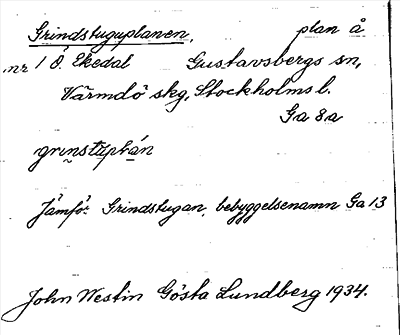 Grindstuguplanen, plan å
nr 1 Ö. Ekedal Gustavsbergs sn,
Värmdö skg, Stockholms l.
Ga 8a
Jämför Grindstugan, bebyggelsenamn Ga 13
John Westin Gösta Lundberg 1934.